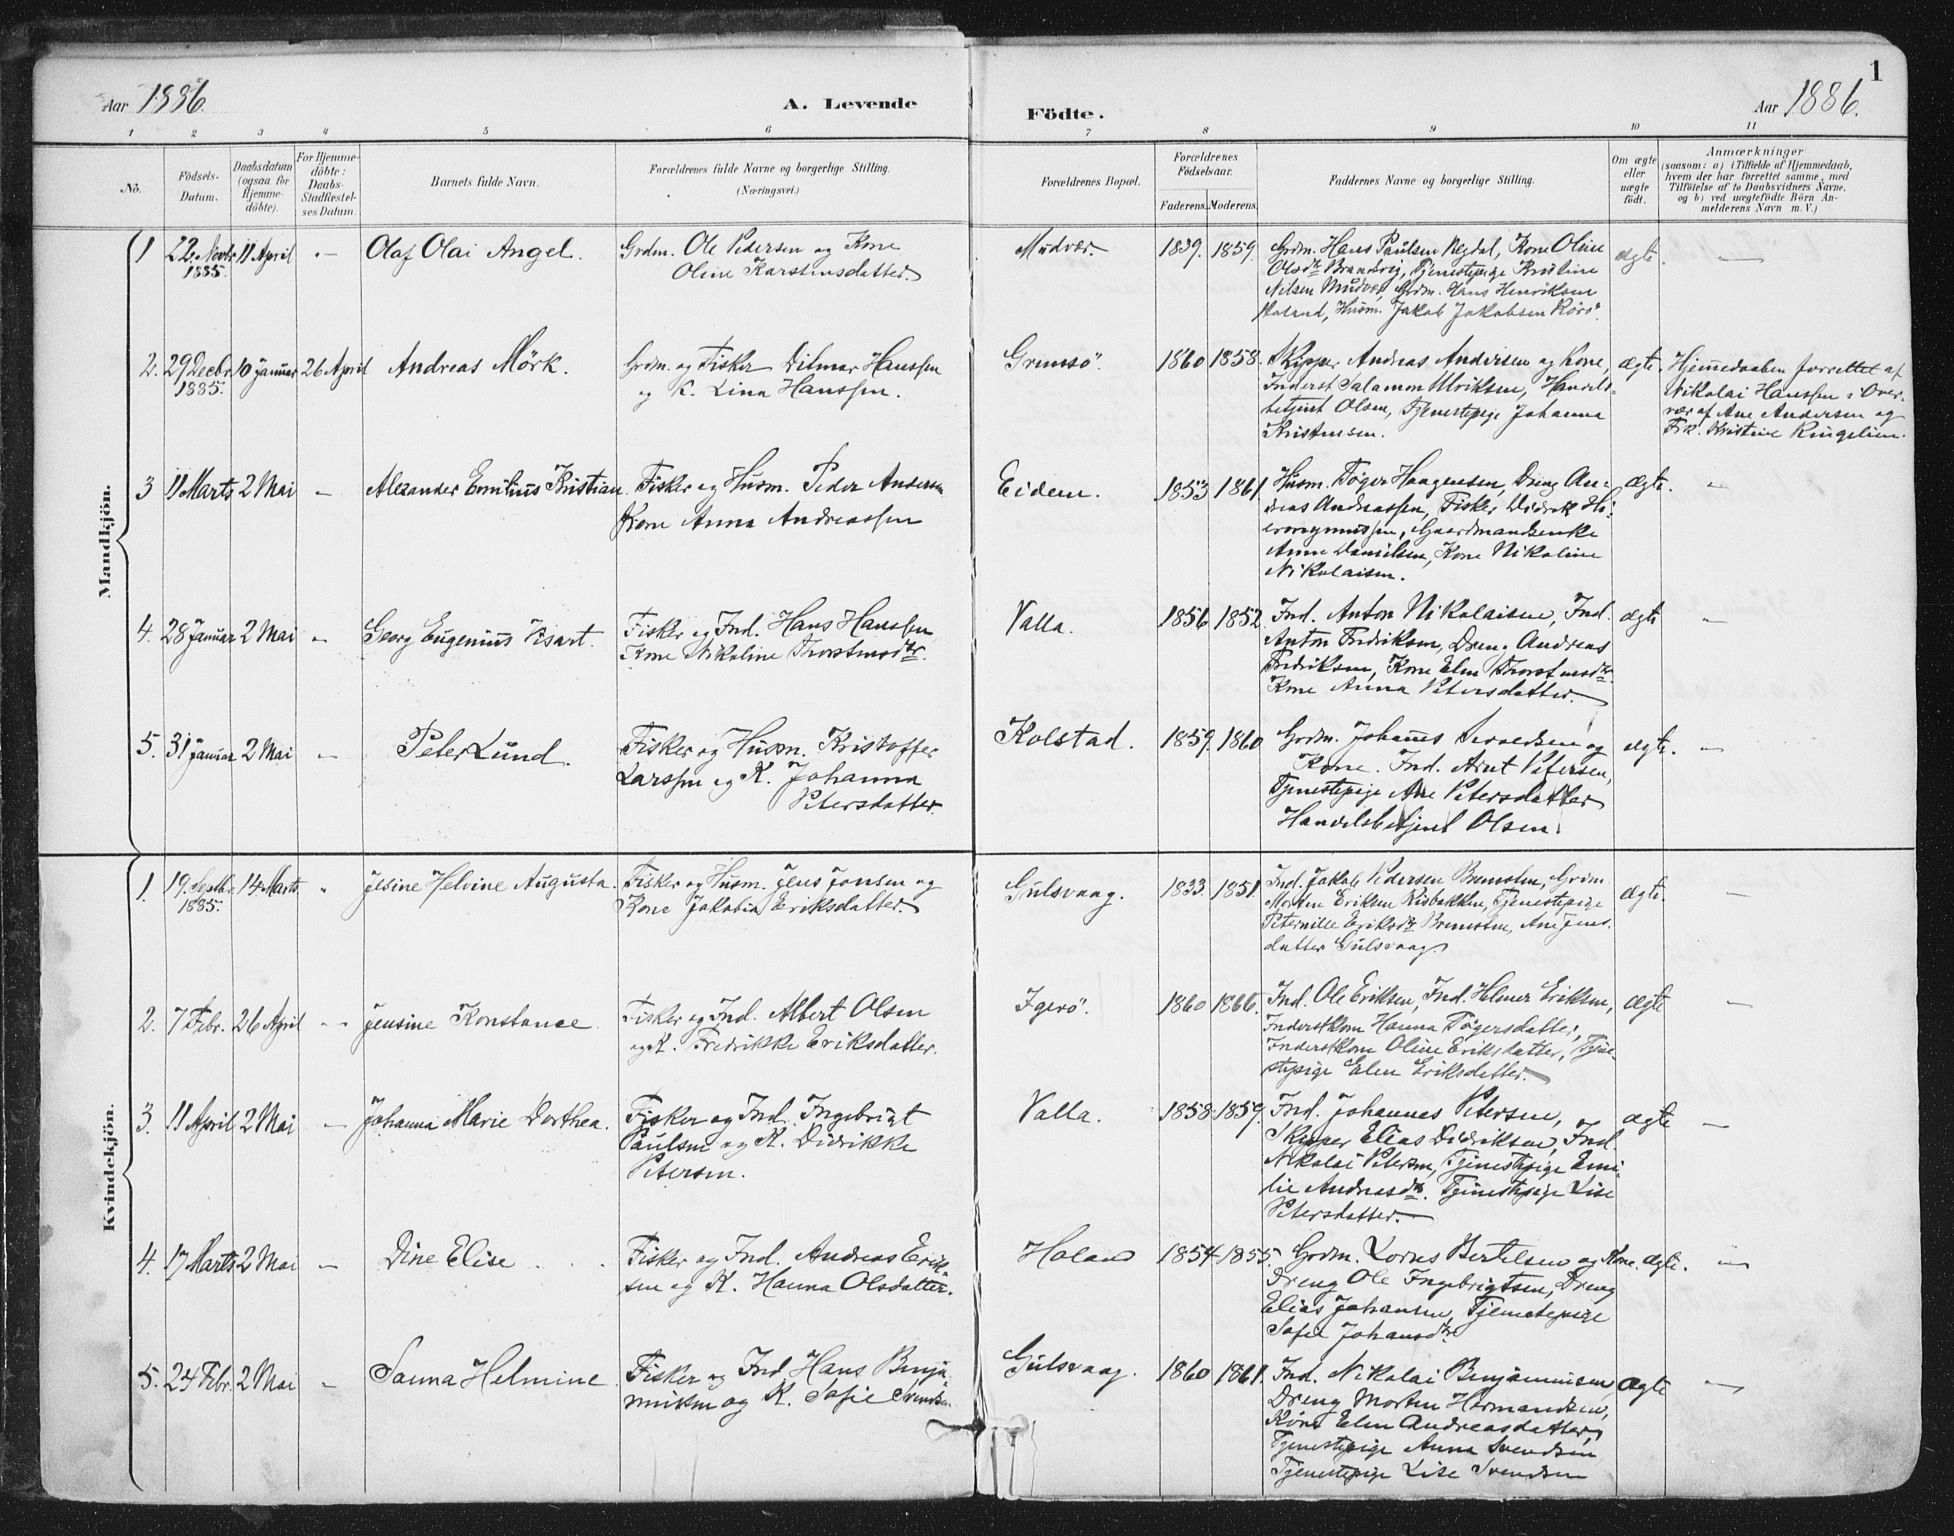 1
Aar 1886.
A. Levende
Födte.
Aar 1886.
1 2 3 4 5 6 7 8 9 10 11
No.
Födsels-Datum.
Daabsdatum (ogsaa for Hjemme-döbte).
For Hjemme-döbte: Daabs-Stadfæstel-ses Datum.
Barnets fulde Navn.
Forældrenes fulde Navne og borgerlige Stilling. (Næringsvei.)
Forældrenes Bopæl.
Forældrenes Födselsaar.
Faderens. Moderens.
Faddernes Navne og borgerlige Stilling.
Om ægte eller uægte födt.
Anmærkninger
(saasom: a) i Tilfælde af Hjemmedaab,
hvem der har forrettet samme, med
Tilföielse af to Daabsvidners Navne,
og b) ved uægtefödte Börn An-
melderens Navn m. V.)
Mandkjön.
1 22. Novbr 1885. 11 April - Olaf Olai Angel.
Grdm. Ole Pedersen og Kone
Oline Karstensdatter
Mudvær. 1839. 1859.
Grdm. Hans Paulsen Regdal, Kone Oline
Olsdtr Brandvig, Tjenestepige Kristine
Nilsen Mudvær, Grdm. Hans Henriksen
Husm. Jakob Jakobsen Rörö.
ægte. —
2. 29 Decbr 1885. 10 Januar 26 April Andreas Mörk.
Grdm. og Fisker Ditmar Hanssen
og K. Lina Hanssen.
Gremsö. 1860 1858.
Skipper Andreas Andersen og Kone,
Inderst Salamon Ulriksen, Handels-
betjent Olsen, Tjenestepige Johanna
Kristensen.
ægte.
Hjemmedaaben forrettet af
Nikolai Hanssen i Over-
vær af Ane Andersen og
Frk. Kristine Ringelien.
3 11 Marts 2 Mai - Alexander Emilius Kristian.
Fisker og Husm. Peder Andersen
Kone Anna Andreassen
Eidem. 1853 1861.
Husm. Töger Haagensen, Dreng An-
dreas Andreassen, Fisker Didrik Hi-
eronymussen, Gaardmandsenke
Anne Danielsen, Kone Nikoline
Nikolaisen.
ægte. —
4. 28 Januar 2 Mai - Georg Eugenius Visart.
Fisker og Ind. Hans Hanssen
Kone Nikoline Thorstensdtr.
Valla. 1856 1852.
Ind. Anton Nikolaisen, Ind.
Anton Fredriksen, Dreng Andreas
Fredriksen, Kone Elen Thorstensdtr.
Kone Anna Petersdatter.
ægte —
5. 31 Januar 2 Mai - Peter Lund.
Fisker og Husm. Kristoffer
Larssen og K. Johanna
Petersdatter
Kolstad. 1859. 1860
Grdm. Johannes og
Kone. Ind. Arnt Petersen,
Tjenestepige Ane Petersdatter
Handelsbetjent Olsen.
ægte. —
Kvindekjön.
1. 19. Septbr. 1885. 14 Marts. - Jesine Helvine Augusta.
Fisker og Husm. Jens Jonsen og
Kone Jakobia Eriksdatter.
Gulsvaag. 1833. 1851.
Ind. Jakob Pedersen Bremsten, Grdm
Morten Eriksen Risbakken, Tjenestepige
Peternille Eriksdtr Bremsten, Ane Jens-
datter Gulsvaag.
ægte. —
2. 7 Febr. 26 April - Jensine Konstance
Fisker og Ind. Albert Olsen
og K. Fredrikke Eriksdatter.
Igerö. 1860 1866.
Ind. Ole Eriksen, Ind. Helmer Eriksen,
Inderstkone Hanna Tögersdatter,
Inderstkone Oline Eriksdatter, Tjene-
stepige Elen Eriksdatter.
ægte —
3. 11 April 2 Mai - Johanna Marie Dorthea.
Fisker og Ind. Ingebrigt
Paulsen og K. Didrikke
Petersen.
Valla. 1858. 1859.
Ind. Johannes Petersen,
Skipper Elias Didriksen, Ind.
Nikolai Petersen, Tjenestepige Emi-
lie Andreasdtr. Tjenestepige Lise
Petersdatter.
ægte —
4. 17 Marts 2 Mai - Dine Elise
Fisker og Ind. Andreas Erik-
sen og K. Hanna Olsdatter.
Holand 1854 1855.
Grdm. Lornts Bertelsen og Kone.
Dreng Ole Ingebrigtsen, Dreng
Elias Johansen, Tjenestepige
Sofie Johansdtr
ægte. —
5. 24 Febr. 2 Mai - Sanna Helmine
Fisker og Ind Hans Benja-
minsen og K. Sofie Svendsen.
Gulsvaag. 1860 1861.
Ind. Nikolai Benjaminsen
Dreng Morten Hermandsen,
Kone Elen Andreasdatter,
Tjenestepige Anna Svendsen
Tjenestepige Lise Svendsen
ægte —